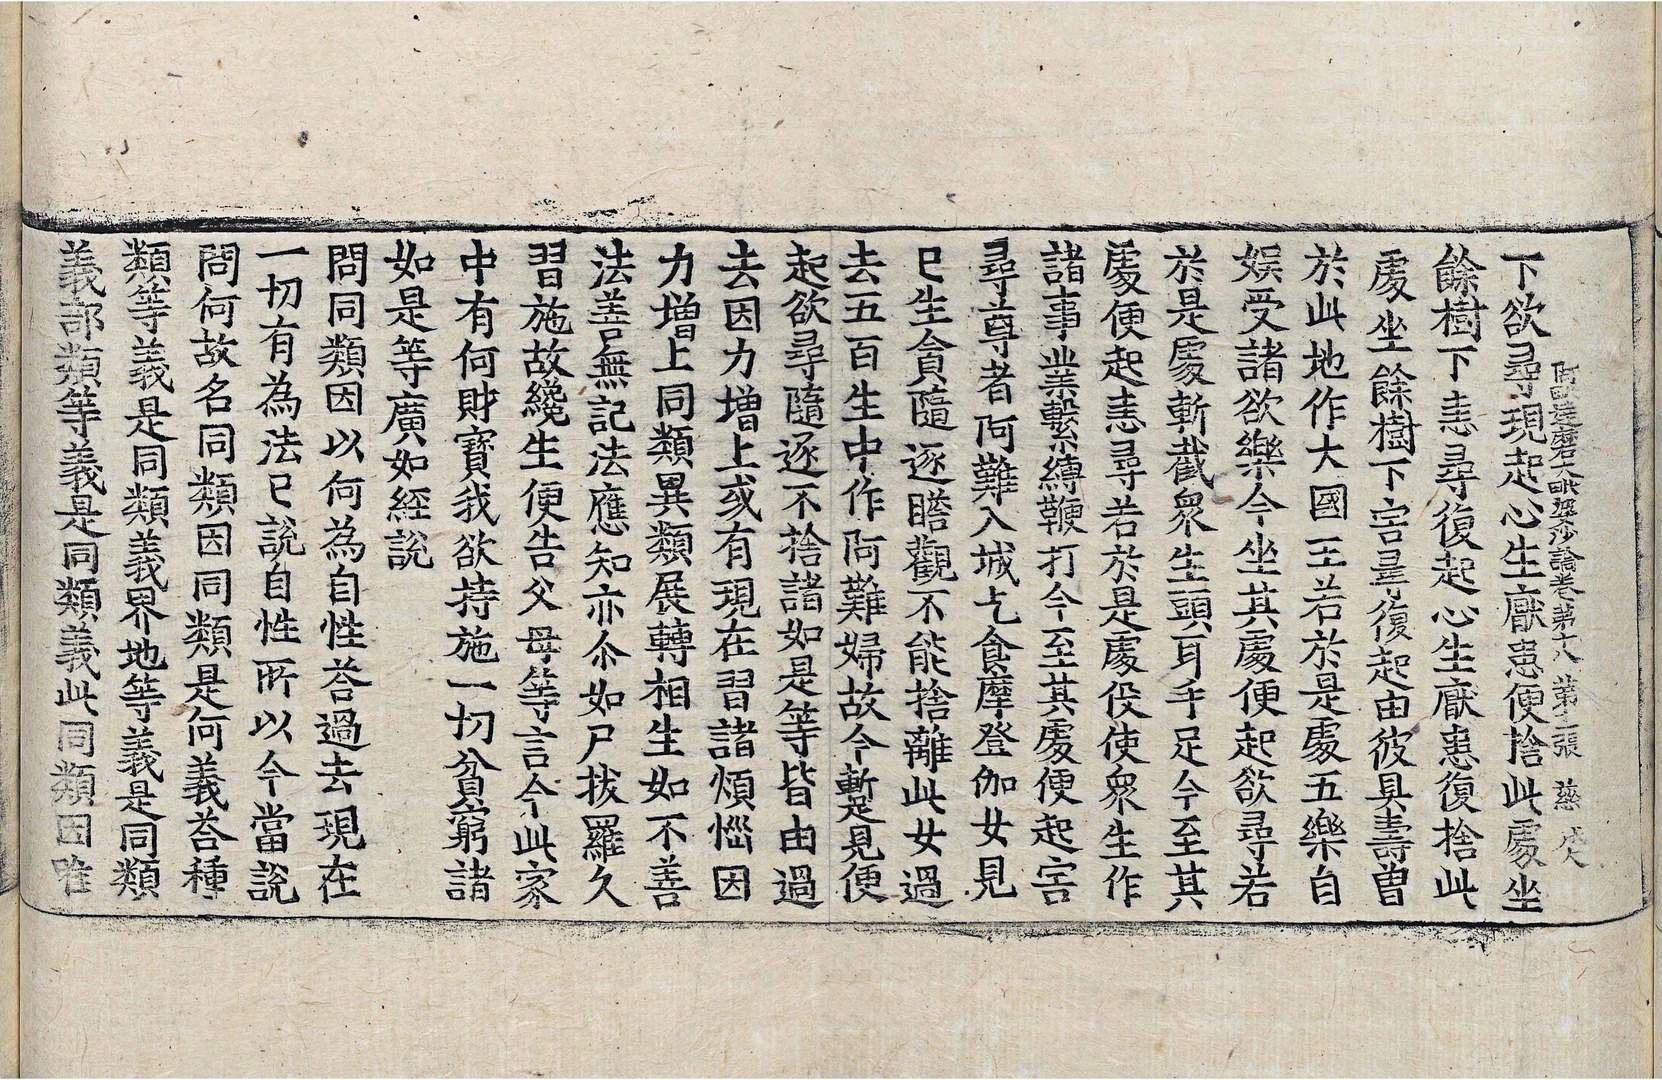 阿毗達磨大毗婆沙論卷第十八　第二張　慈
下欲尋現起心生猒患便捨此處坐
餘樹下恚尋復起心生猒患復捨此
處坐餘樹下害尋復起由彼具壽曽
於此地作大國王若於是處五樂自
娛受諸欲樂今坐其處便起欲尋若
於是處斬截衆生頭耳手足今至其
處便起恚尋若於是處役使衆生作
諸事業繫縛鞭打今至其處便起害
尋尊者阿難入城乞食摩登伽女見
已生貪隨逐瞻觀不能捨離此女過
去五百生中作阿難婦故今蹔見便
起欲尋隨逐不捨諸如是等皆由過
去因力增上或有現在習諸煩惱因
力增上同類異類展轉相生如不善
法善無記法應知亦尒如尸拔羅久
習施故纔生便告父母等言今此家
中有何財寶我欲持施一切貧窮諸
如是等廣如經說
問同類因以何為自性荅過去現在
一切有為法已說自性所以今當說
問何故名同類因同類是何義荅種
類等義是同類義界地等義是同類
義部類等義是同類義此同類因唯